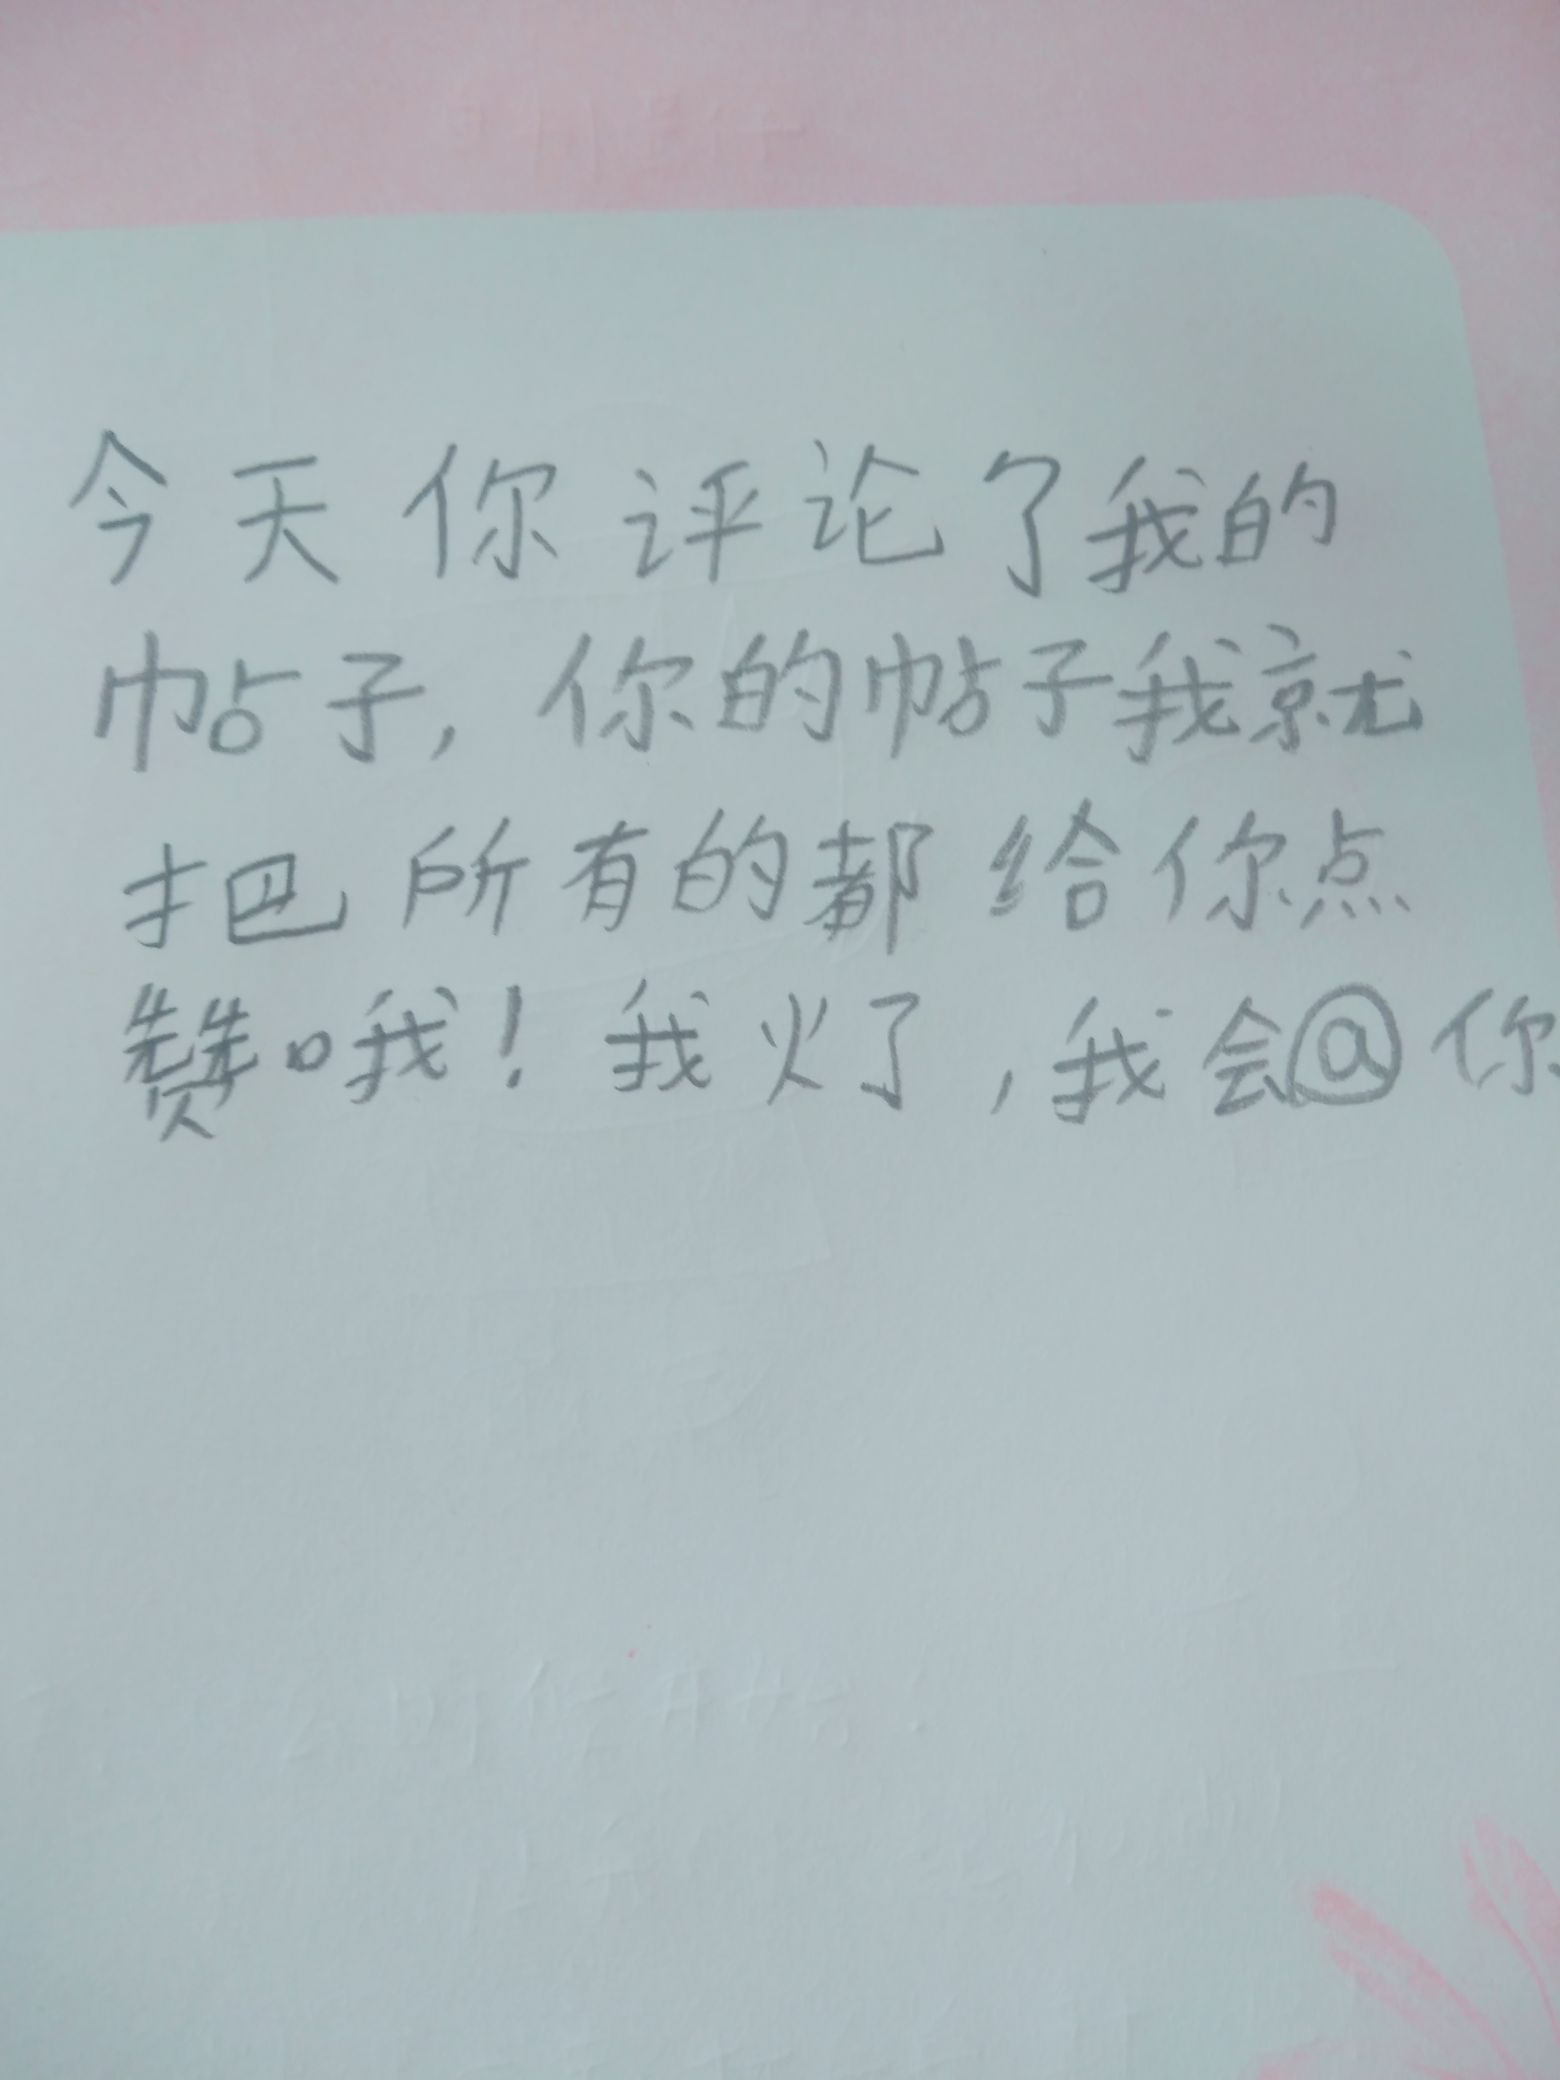 今天你评论了我的
帖子,你的帖子我就
把所有的都给你点
赞哦!我火了,我会@你